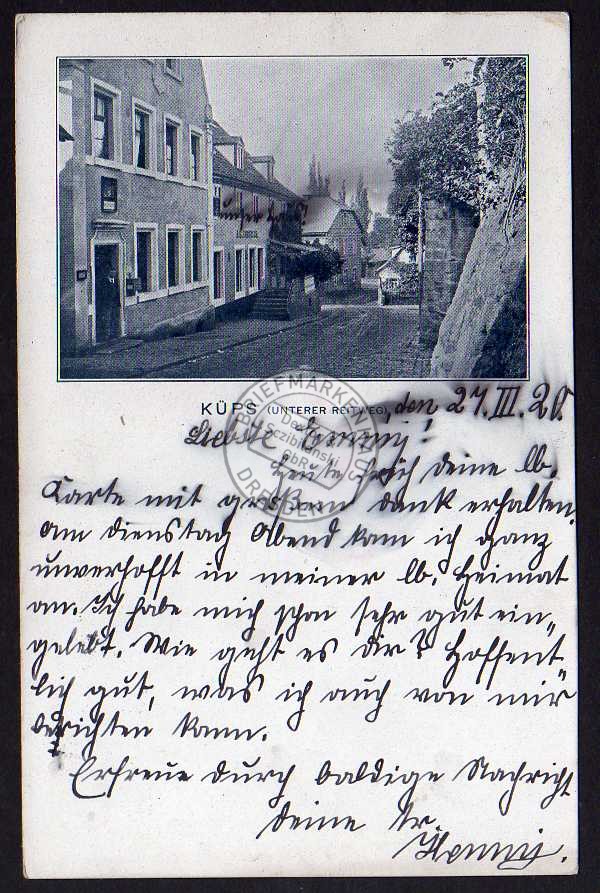 unser Haus!
KÜPS (UNTERER REITWEG), den 27.III.20.
Liebste Emmy!
Heute früh deine lb.
Karte mit großem dank erhalten.
Am dienstag Abend kam ich ganz
unverhofft in meiner lb. Heimat
an. Ich habe mich schon sehr gut ein„
gelebt. Wie geht es dir? Hoffent„
lich gut, was ich auch von mir
berichten kann.
Erfreue durch baldige Nachricht
deine tr.
BRIEFMARKEN
DRESDEN